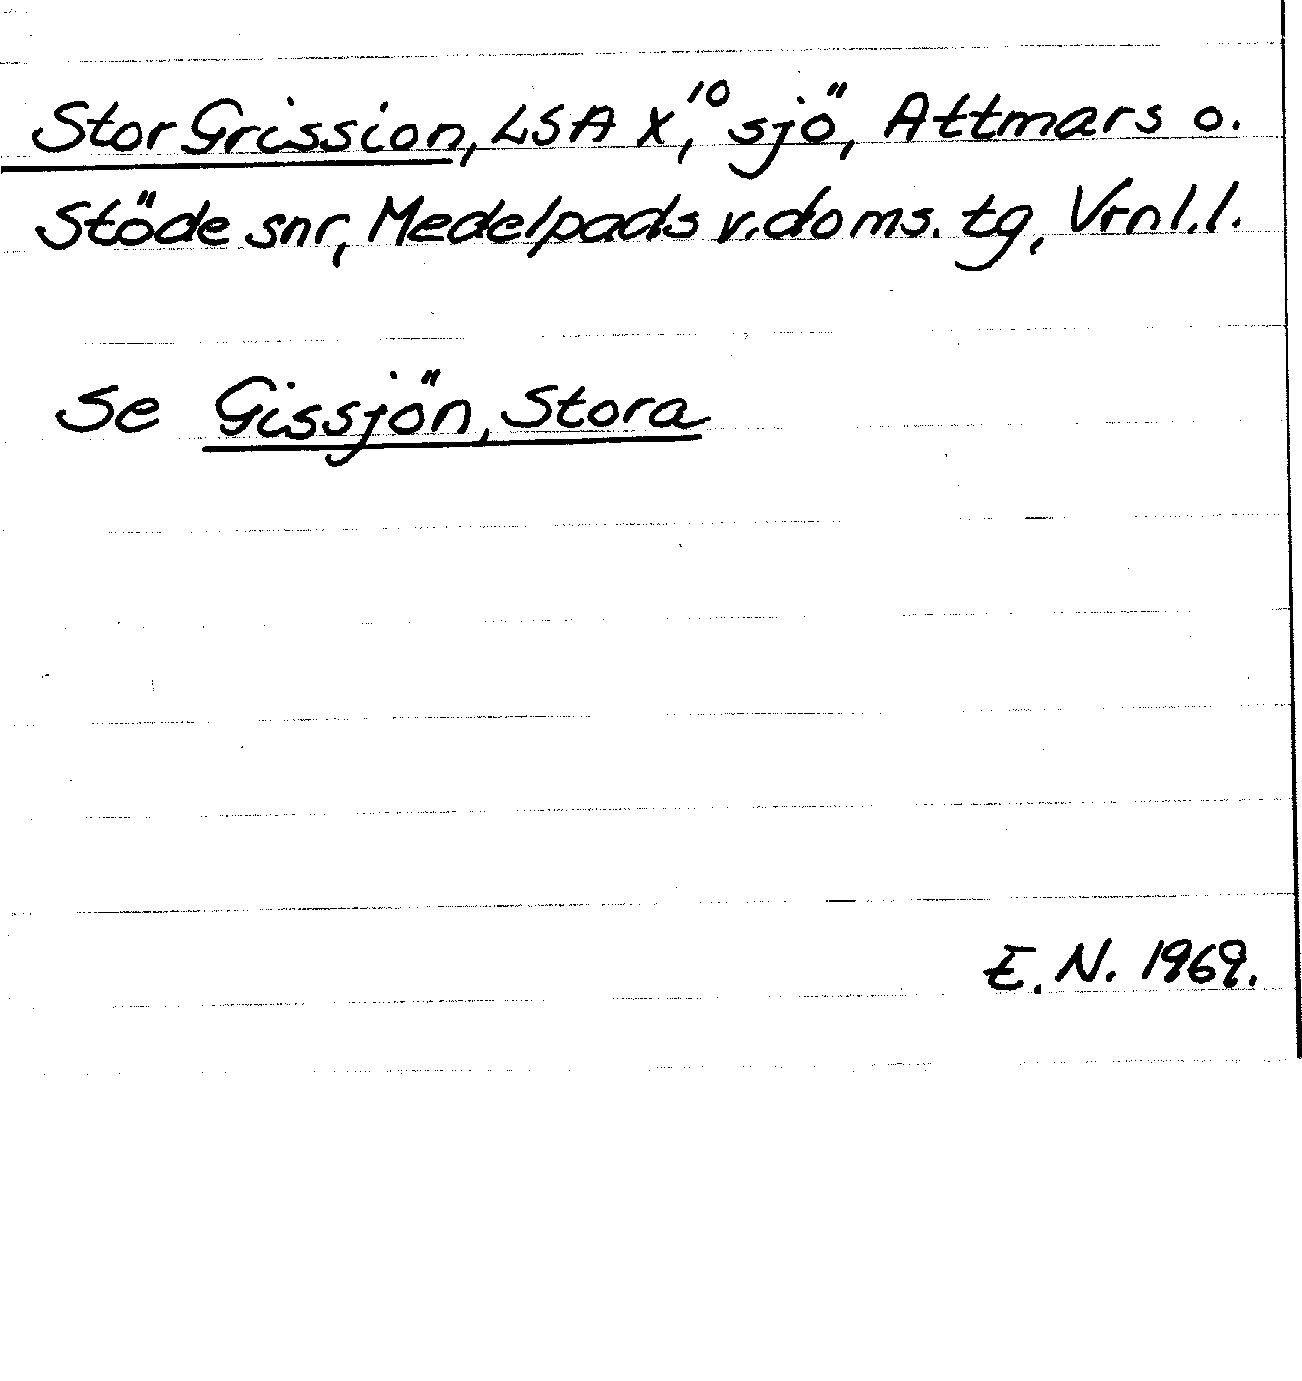 Stor Grission, LSA X,¹⁰ sjö, Attmars o.
Stöde snr, Medelpads v. doms. tg, Vrnl. l.
Se Gissjön, Stora
E. N. 1969.